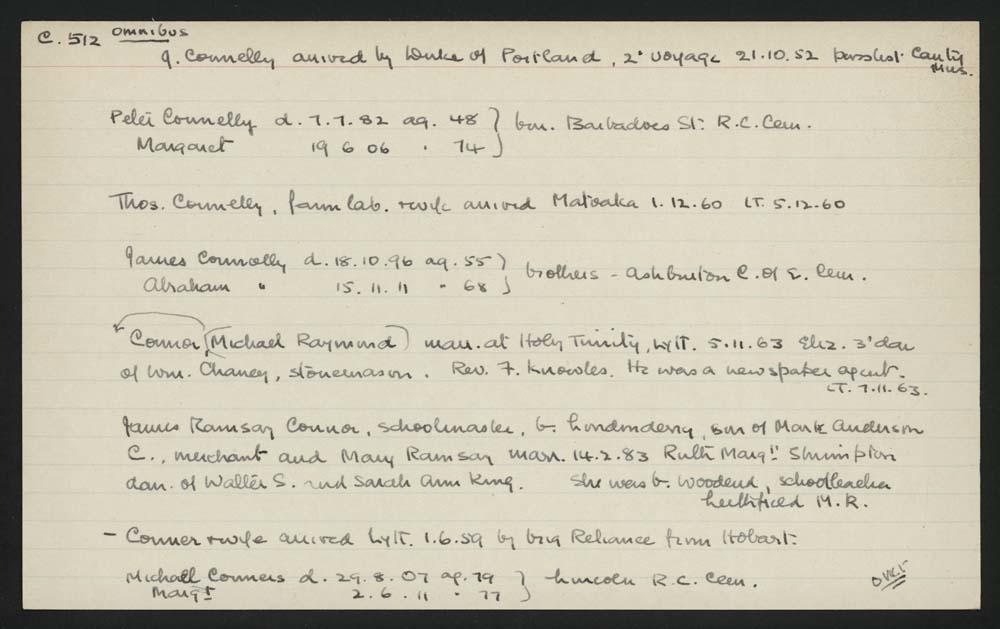 C. 512 Omnibus
J. Connelly arrived by Duke of Portland, 2° voyage 21.10.52 passlist Canty
Mus.
Peter Connelly d. 7.7.82 ag. 48 } bur. Barbadoes St: R.C. Cem.
Margaret 19 6 06 " 74
Thos. Connelly, farm lab. & wife arrived Matoaka 1.12.60 LT. 5.12.60
James Connolly d. 18.10.96 ag. 55 } brothers - Ashburton C. of E. Cem.
Abraham " 15.11.11 " 68
Connor (Michael Raymond) marr. at Holy Trinity, Lytt. 5.11.63 Eliz. 3' dau
of Wm. Chaney, stonemason. Rev. F. Knowles. He was a newspaper agent.
LT. 7.11.63.
James Ramsay Connor, schoolmaster, b. Londonderry, son of Mark Anderson
C., merchant and Mary Ramsay marr. 14.2.83 Ruth Margt. Shrimpton
dau. of Walter S. and Sarah Ann King. She was b. Woodend, schoolteacher
M.R.
- Conner & wife arrived Lytt. 1.6.59 by brig Reliance from Hobart.
Michael Conners d. 29.8.07 ag. 79 } Lincoln R.C. Cem.
Margt 2.6.11 " 77
over